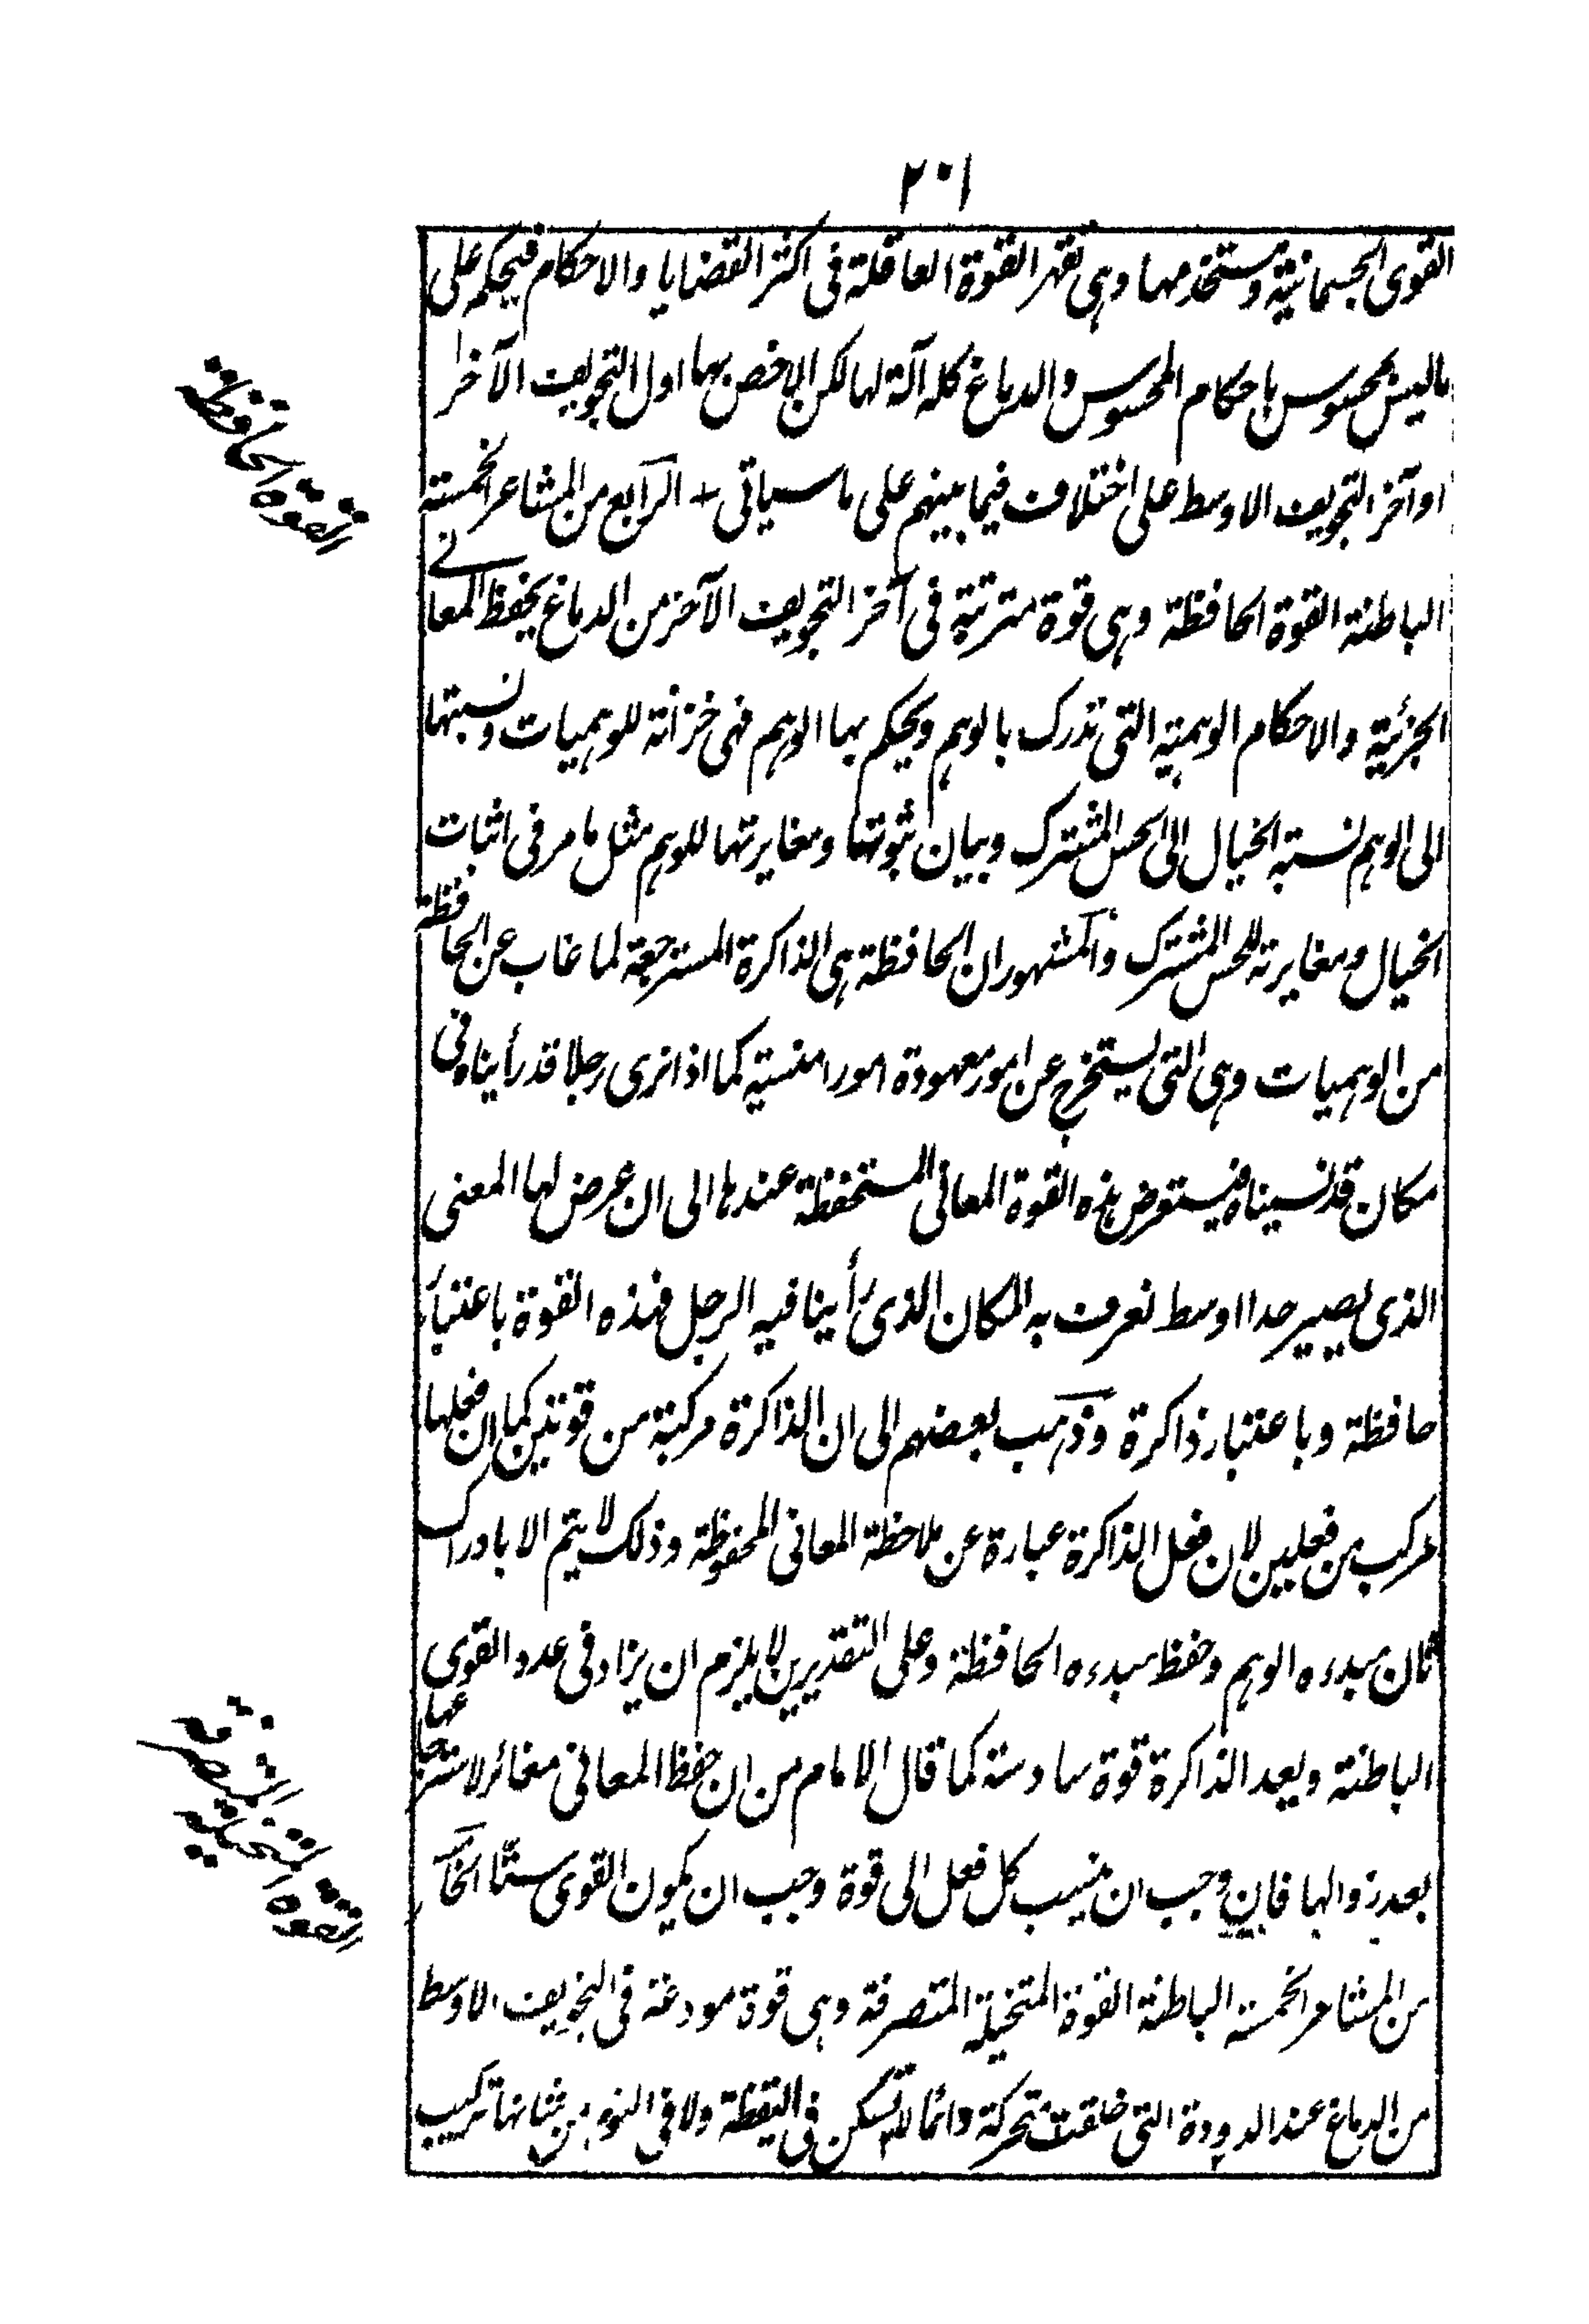 ٢٠١
القوى الجسمانية وتستخدمها وهى تقهر القوة العاقلة فى اكثر القضايا والاحكام فيحكم على
ماليس بمحسوس باحكام المحسوس والدماغ كله آلة لها لكن الاخص بها اول التجويف الآخر
او آخر التجويف الاوسط على اختلاف فيما بينهم على ما سياتى + الرابع من المشاعر الخمسة
الباطنة القوة الحافظة وهى قوة مترتبة فى آخر التجويف الآخر من الدماغ يحفظ المعانى
الجزئية والاحكام الوهمية التى تدرك بالوهم ويحكم بها الوهم فهى خزانة للوهميات ونسبتها
الى الوهم نسبة الخيال الى الحس المشترك وبيان ثبوتها ومغايرتها للوهم مثل ما مر فى اثبات
الخيال ومغايرته للحس المشترك والمشهور ان الحافظة هى الذاكرة المسترجعة لما غاب عن الحافظة
من الوهميات وهى التى يستخرج عن امور معهودة امورا منسية كما اذا نرى رجلا قد رأيناه فى
مكان قد نسيناه فيستعرض هذه القوة المعانى المستحفظة عندها الى ان عرض لها المعنى
الذى يصير حدا اوسط نعرف به المكان الذى رأينا فيه الرجل فهذه القوة باعتبار
حافظة وباعتبار ذاكرة وذهب بعضهم الى ان الذاكرة مركبة من قوتين كما ان فعلها
مركب من فعلين لان فعل الذاكرة عبارة عن ملاحظة المعانى المحفوظة وذلك لا يتم الا بادراك
ثان مبدءه الوهم وحفظ مبدءه الحافظة وعلى التقديرين لا يلزم ان يزاد فى عدد القوى
الباطنة ويعد الذاكرة قوة سادسة كما قال الامام من ان حفظ المعانى مغائر لاسترجاعها
بعد زوالها فان وجب ان ينسب كل فعل الى قوة وجب ان يكون القوى ستا الخامس
من المشاعر الخمسة الباطنة القوة المتخيلة المتصرفة وهى قوة مودعة فى التجويف الاوسط
من الدماغ عند الدودة التى خلقت متحركة دائما لا تسكن فى اليقظة ولا فى النوم من شانها تركيب
القوة الحافظة
القوة المتخيلة المتصرفة